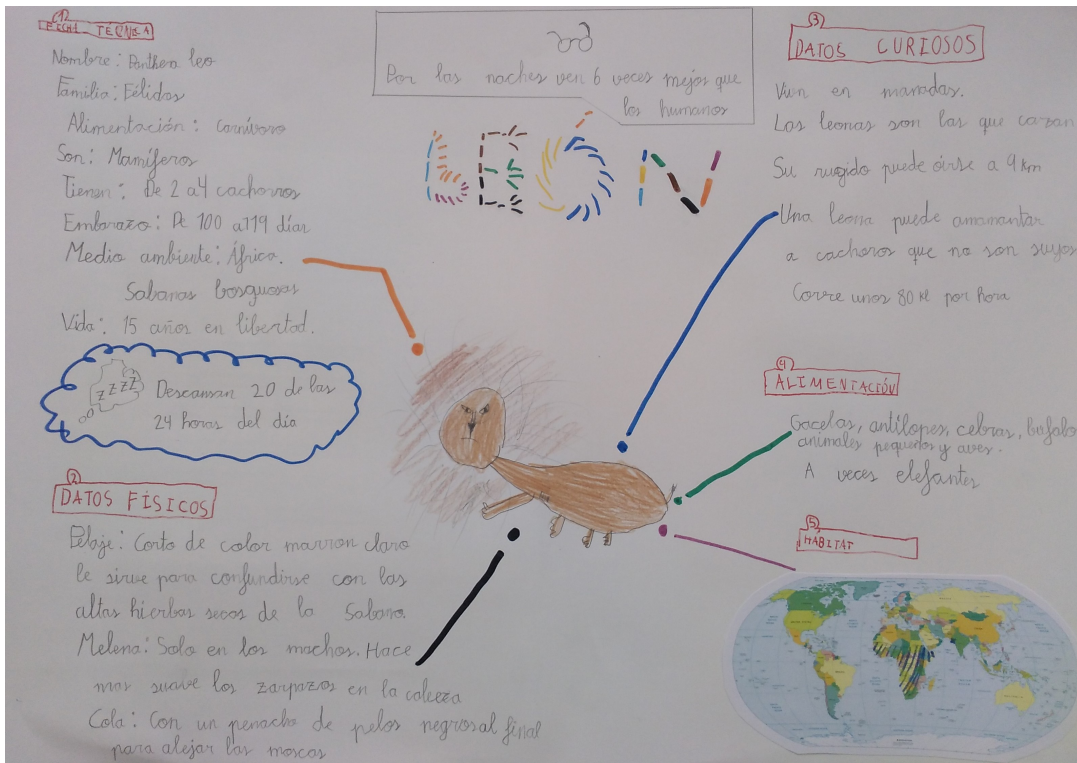 1
FICHA TÉCNICA
Nombre: Panthera leo
Familia: Félidos
Alimentación: Carnívoro
Son: Mamíferos
Tienen: De 2 a 4 cachorros
Embarazo: De 100 a 119 días
Medio ambiente: África.
Sabanas bosquosas
Vida: 15 años en libertad.
zzzz Descansan 20 de las
24 horas del día
2
DATOS FÍSICOS
Pelaje: Corto de color marron claro
le sirve para confundirse con las
altas hierbas secas de la Sabana.
Melena: Solo en los machos. Hace
mas suave los zarpazos en la cabeza
Cola: Con un penacho de pelos negros al final
para alejar las moscas
Por las noches ven 6 veces mejor que
los humanos
LEÓN
3
DATOS CURIOSOS
Viven en manadas.
Las leonas son las que cazan
Su rugido puede oirse a 9 km
Una leona puede amamantar
a cachoros que no son suyos
Corre unos 80 kl por hora
4
ALIMENTACIÓN
Gacelas, antílopes, cebras, bufalo
animales pequeños y aves.
A veces elefantes
5
HÁBITAT